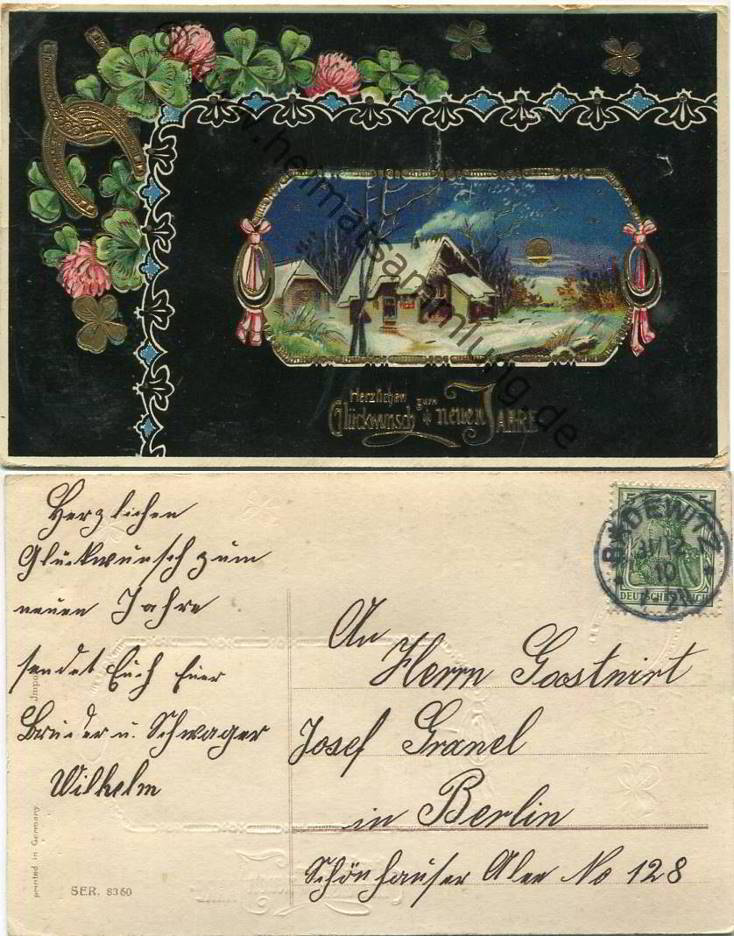 © www.heimatsammlung.de
Herzlichen
Glückwunsch zum neuen JAHRE
Herzlichen
Glückwunsch zum
neuen Jahre
sendet Euch Euer
Bruder u. Schwager
Wilhelm
5 5
BADEWITZ
31/12
10
DEUTSCHES REICH
An
Herrn Gastwirt
Josef Granel
in Berlin
Schönhauser Alee No 128
printed in Germany
SER. 8360